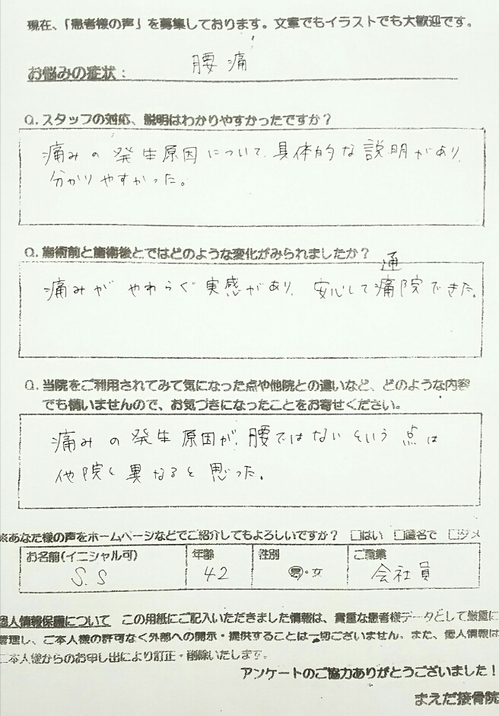 現在、「患者様の声」を募集しております。文章でもイラストでも大歓迎です。
お悩みの症状： 腰痛
Q. スタッフの対応、説明はわかりやすかったですか？
痛みの発生原因について、具体的な説明があり、
分かりやすかった。
Q. 施術前と施術後とではどのような変化がみられましたか？
通
痛みがやわらぐ実感があり、安心して痛院できた。
Q. 当院をご利用されてみて気になった点や他院との違いなど、どのような内容
でも構いませんので、お気づきになったことをお寄せください。
痛みの発生原因が腰ではないという点は
他院と異なると思った。
※あなた様の声をホームページなどでご紹介してもよろしいですか？ □はい □匿名で □ダメ
お名前(イニシャル可) 年齢 性別 ご職業
S.S 42 男・女 会社員
個人情報保護について この用紙にご記入いただきました情報は、貴重な患者様データとして厳重に
管理し、ご本人様の許可なく外部への開示・提供することは一切ございません。また、個人情報は
ご本人様からのお申し出により訂正・削除いたします。
アンケートのご協力ありがとうございました！
まえだ接骨院